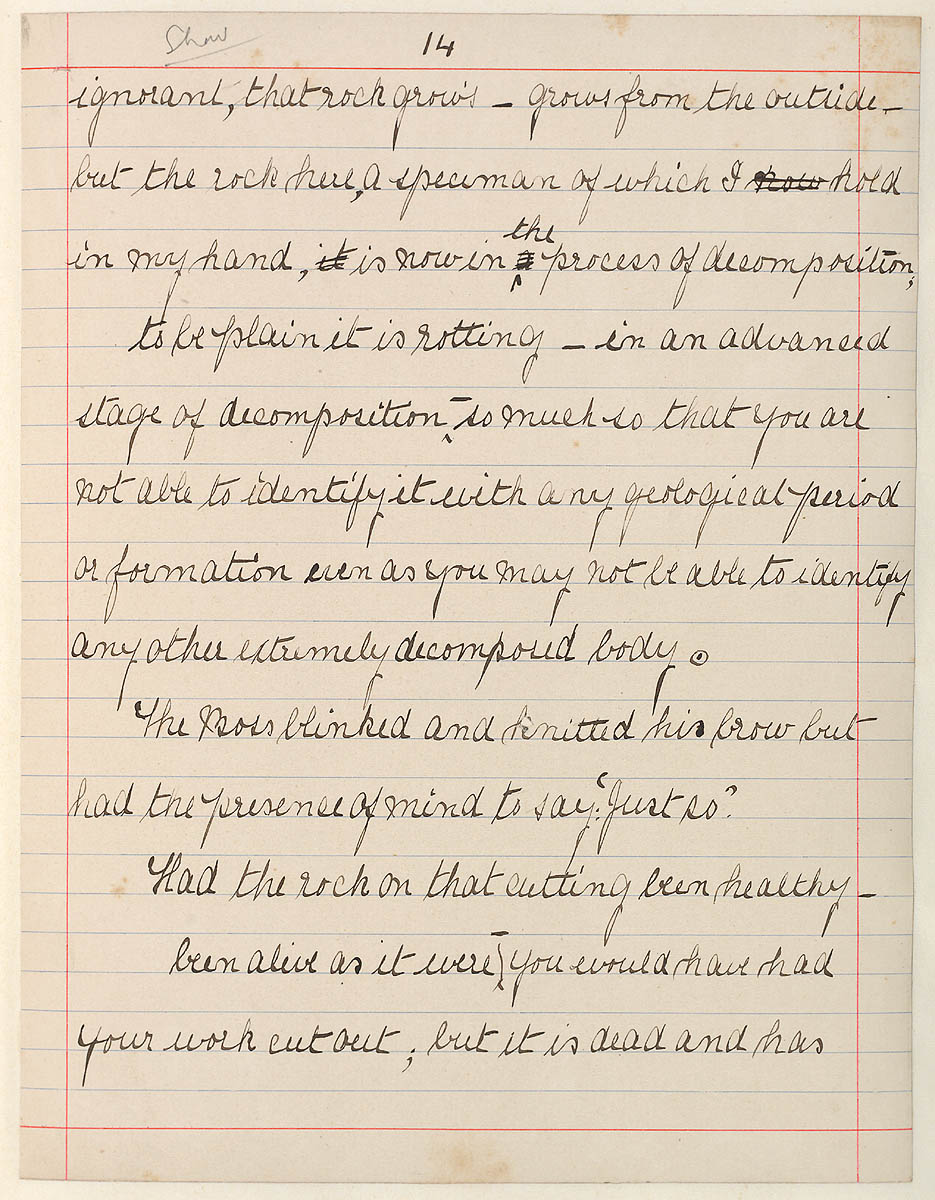 Show
14
ignorant, that rock grows – grows from the outside –
but the rock here, a speciman of which I now hold
in my hand, it is now in the process of decomposition;
to be plain it is rotting – in an advanced
stage of decomposition – so much so that you are
not able to identify it with any geological period
or formation even as you may not be able to identify
any other extremely decomposed body.
The Boss blinked and knitted his brow but
had the presence of mind to say: "Just so".
Had the rock on that cutting been healthy –
been alive as it were – you would have had
your work cut out; but it is dead and has